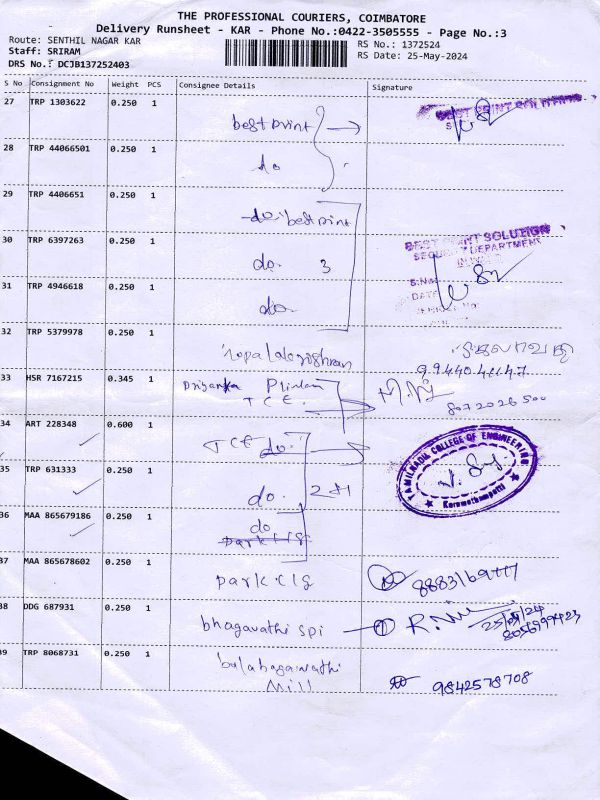 THE PROFESSIONAL COURIERS, COIMBATORE
Delivery Runsheet - KAR - Phone No.:0422-3505555 - Page No.:3
Route: SENTHIL NAGAR KAR
Staff: SRIRAM
DRS No.: DCJB137252403
RS No.: 1372524
RS Date: 25-May-2024
S No Consignment No Weight PCS Consignee Details Signature
27 TRP 1303622 0.250 1
best print
28 TRP 44066501 0.250 1
do
29 TRP 4406651 0.250 1
do. best print
BEST PRINT SOLUTION
30 TRP 6397263 0.250 1
do. 3
31 TRP 4946618 0.250 1
do.
32 TRP 5379978 0.250 1
33 HSR 7167215 0.345 1
Priyanka
T C E.
34 ART 228348 0.600 1
T C E do.
TAMILNADU COLLEGE OF ENGINEERING
Karumathampatti
35 TRP 631333 0.250 1
do. 2+1
36 MAA 865679186 0.250 1
do
park clg
37 MAA 865678602 0.250 1
park clg
38 DDG 687931 0.250 1
bhagavathi spi
39 TRP 8068731 0.250 1
Mill
9842578708